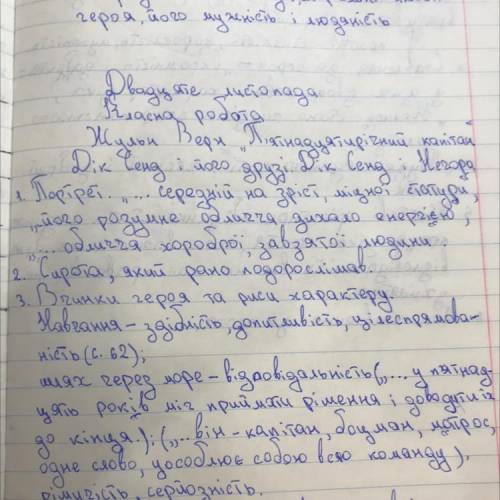 героя, його мужність і людяність
Двадцяте листопада
Класна робота
Жульн Верн „П'ятнадцятирічний капітан
Дік Сенд і його друзі. Дік Сенд і Негоро
1. Портрет „... середній на зріст, міцної статури,
„його розумне обличчя дихало енергією,
„... обличчя хороброї, завзятої людини
2. Сирота, який рано подорослішав.
3. Вчинки героя та риси характеру.
Навчання – здібність, допитливість, цілеспрямова-
ність (с. 62);
шлях через море – відповідальність („... у п'ятнад-
цять років міг приймати рішення і доводити їх
до кінця.); („... він – капітан, боцман, матрос,
одне слово, уособлює собою всю команду),
рішучість, серйозність.